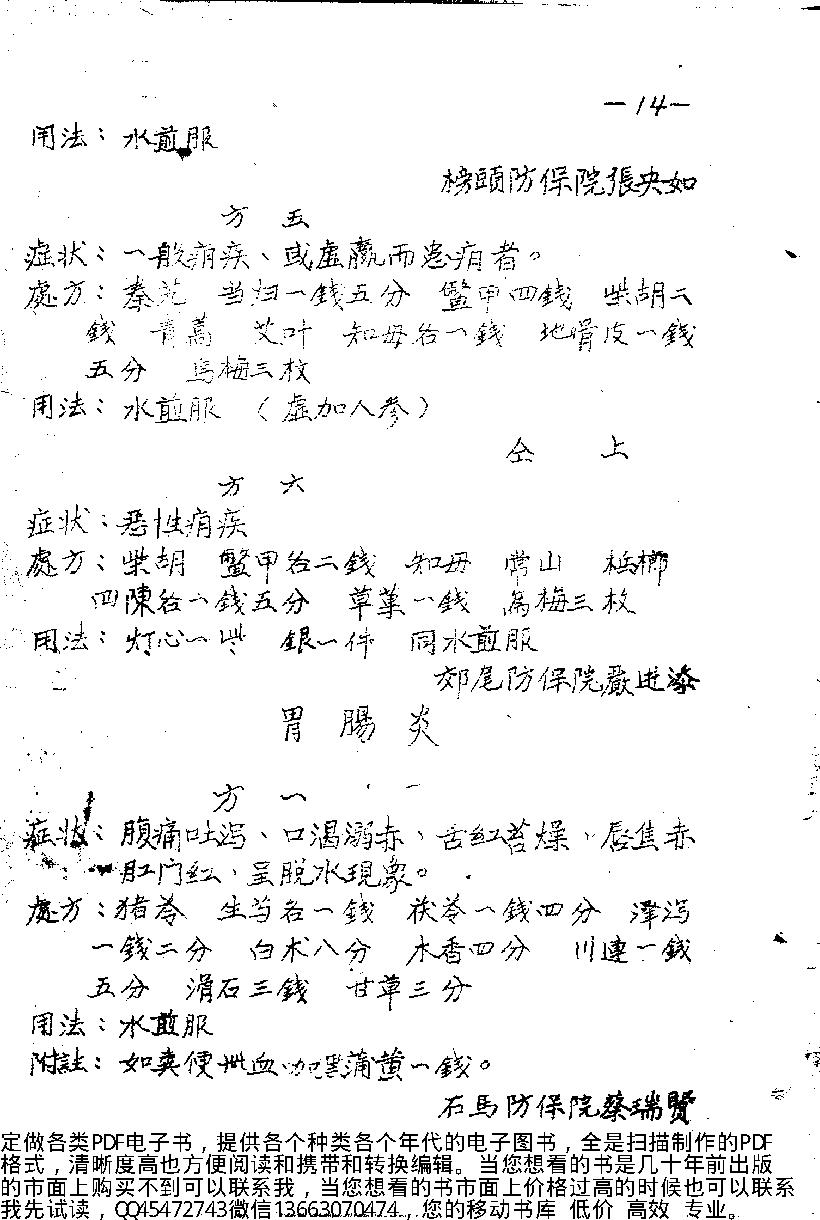 —14—
用法：水煎服
榜頭防保院張央如
方五
症状：一般痟疾、或虚羸而患痟者。
處方：秦艽 当归一錢五分 鱉甲四錢 柴胡二
錢 青蒿 艾叶 知母各一錢 地骨皮一錢
五分 烏梅三枚
用法：水煎服（虚加人參）
仝上
方六
症状：恶性痟疾
處方：柴胡 鱉甲各二錢 知母 常山 槟榔
四陳各一錢五分 草菓一錢 烏梅三枚
用法：灯心一 銀一件 同水煎服
郊尾防保院嚴进
胃腸炎
方一
症状：腹痛吐泻、口渴溺赤、舌紅苔燥、唇焦赤
肛门红、呈脱水現象。
處方：猪苓 生芍各一錢 茯苓一錢四分 泽泻
一錢二分 白术八分 木香四分 川連一錢
五分 滑石三錢 甘草三分
用法：水煎服
附註：如粪便血加黑蒲黄一錢。
石馬防保院蔡瑞贤
定做各类PDF电子书，提供各个种类各个年代的电子图书，全是扫描制作的PDF
格式，清晰度高也方便阅读和携带和转换编辑。当您想看的书是几十年前出版
的市面上购买不到可以联系我，当您想看的书市面上价格过高的时候也可以联系
我先试读，QQ45472743微信13663070474，您的移动书库 低价 高效 专业。